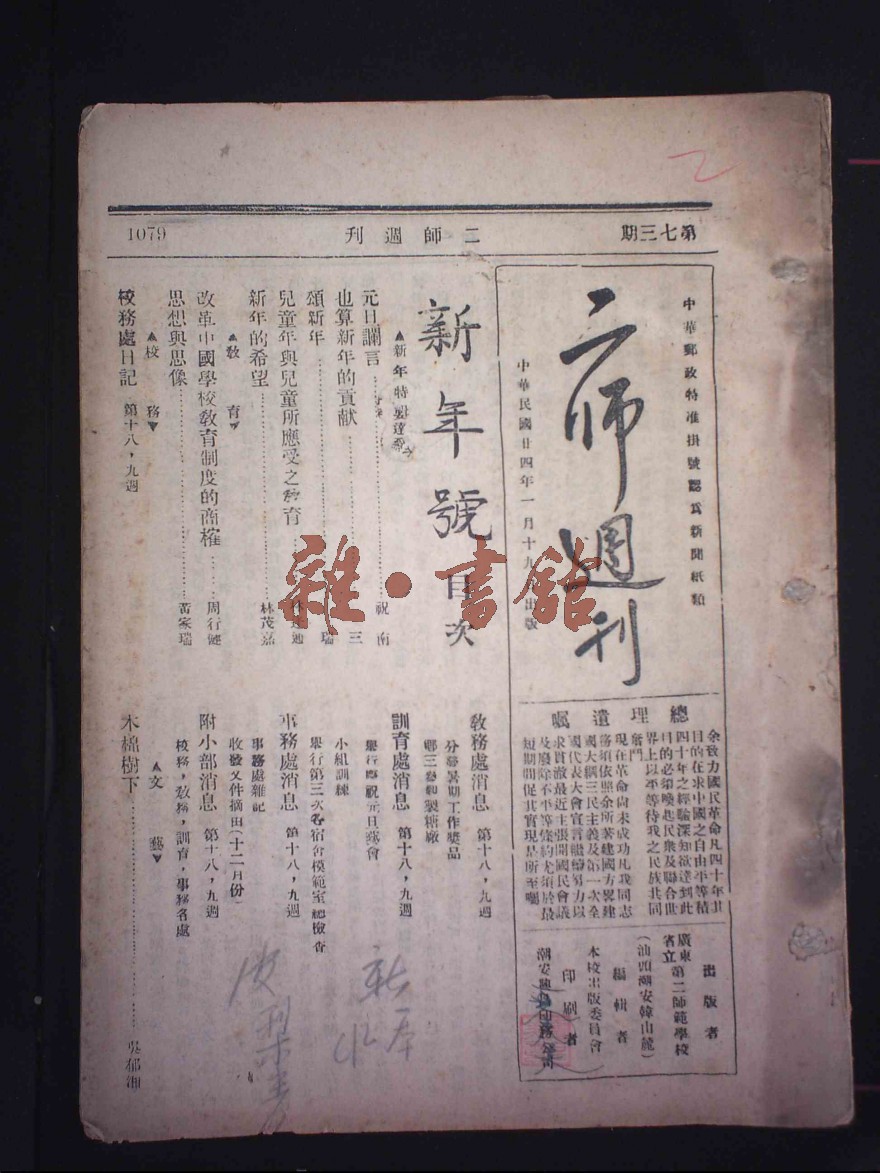 第七三期
二師週刊
1079
中華郵政特准掛號認爲新聞紙類
二師週刊
中華民國廿四年一月十九日出版
總理遺囑
余致力國民革命凡四十年其
目的在求中國之自由平等積
四十年之經驗深知欲達到此
目的必須喚起民衆及聯合世
界上以平等待我之民族共同
奮鬥
現在革命尚未成功凡我同志
務須依照余所著建國方畧建
國大綱三民主義及第一次全
國代表大會宣言繼續努力以
求貫澈最近主張開國民會議
及廢除不平等條約尤須於最
短期間促其實現是所至囑
出版者
廣東省立第二師範學校
(汕頭潮安韓山麓)
編輯者
本校出版委員會
印刷者
新年號目次
▲新年特
元日讕言 祝南
也算新年的貢献 三
頌新年 瑞
兒童年與兒童所應受之教育
新年的希望 林茂嘉
▲教育▼
改革中國學校教育制度的商榷 周行健
思想與思像 黃家瑞
▲校務▼
校務處日記 第十八,九週
教務處消息 第十八,九週
分發暑期工作獎品
鄉三參觀製糖廠
訓育處消息 第十八,九週
舉行慶祝元日遊會
小組訓練
舉行第三次各宿舍模範室總檢查
事務處消息 第十八,九週
事務處雜記
收發文件摘由(十二月份)
附小部消息 第十八,九週
校務,教務,訓育,事務各處
▲文藝▼
木棉樹下 吳郁湘
雜·書館